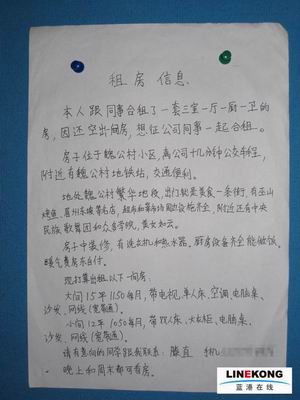 租房 信息
本人跟同事合租了一套三室一厅一厨一卫的
房,因还空出一间房,想征公司同事一起合租。
房子位于魏公村小区,离公司十几分钟公交车程,
附近有魏公村地铁站,交通便利。
地处魏公村繁华地段,出门就是美食一条街,有巫山
烤鱼、眉州东坡等名店,超市和菜市场周边设施齐全,附近还有中央
民族歌舞团和众多学院,美女如云。
房子中装修,有洗衣机和热水器。厨房设备齐全能做饭。
暖气费房东自付。
现打算合租以下一间房。
大间15平1150每月,带电视、单人床、空调、电脑桌、
沙发、网线(宽带通)。
小间12平1050每月,带双人床、大衣柜、电脑桌、
沙发、网线(宽带通)。
请有意向的同学跟我联系:滕直 手机
晚上和周末都可看房。
LINEKONG
蓝港在线